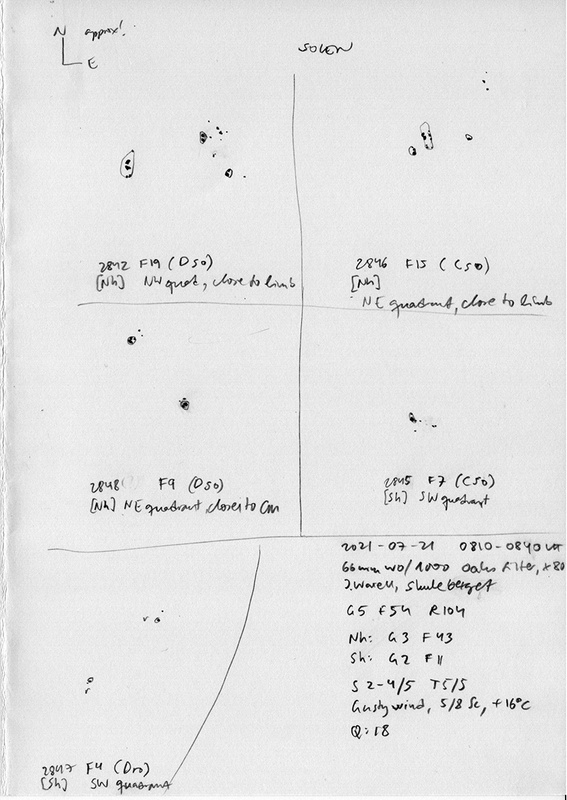 N approx!
E
SOLEN
2842 F19 (Dso)
[Nh] NW quat, close to limb
2846 F15 (Cso)
[Nh]
NE quadrant, close to limb
2848 F9 (Dso)
[Nh] NE quadrant, closer to CM
2845 F7 (Cso)
[Sh] SW quadrant
2021-07-21 0810-0840 UT
66mm WO/1000 Oaks filter, ×80
J. Warell, Skuleberget
G5 F54 R104
Nh: G3 F43
Sh: G2 F11
S 2-4/5 T5/5
Gusty wind, 5/8 Sc, +16°C
Q: 18
2847 F4 (Dro)
[Sh] SW quadrant